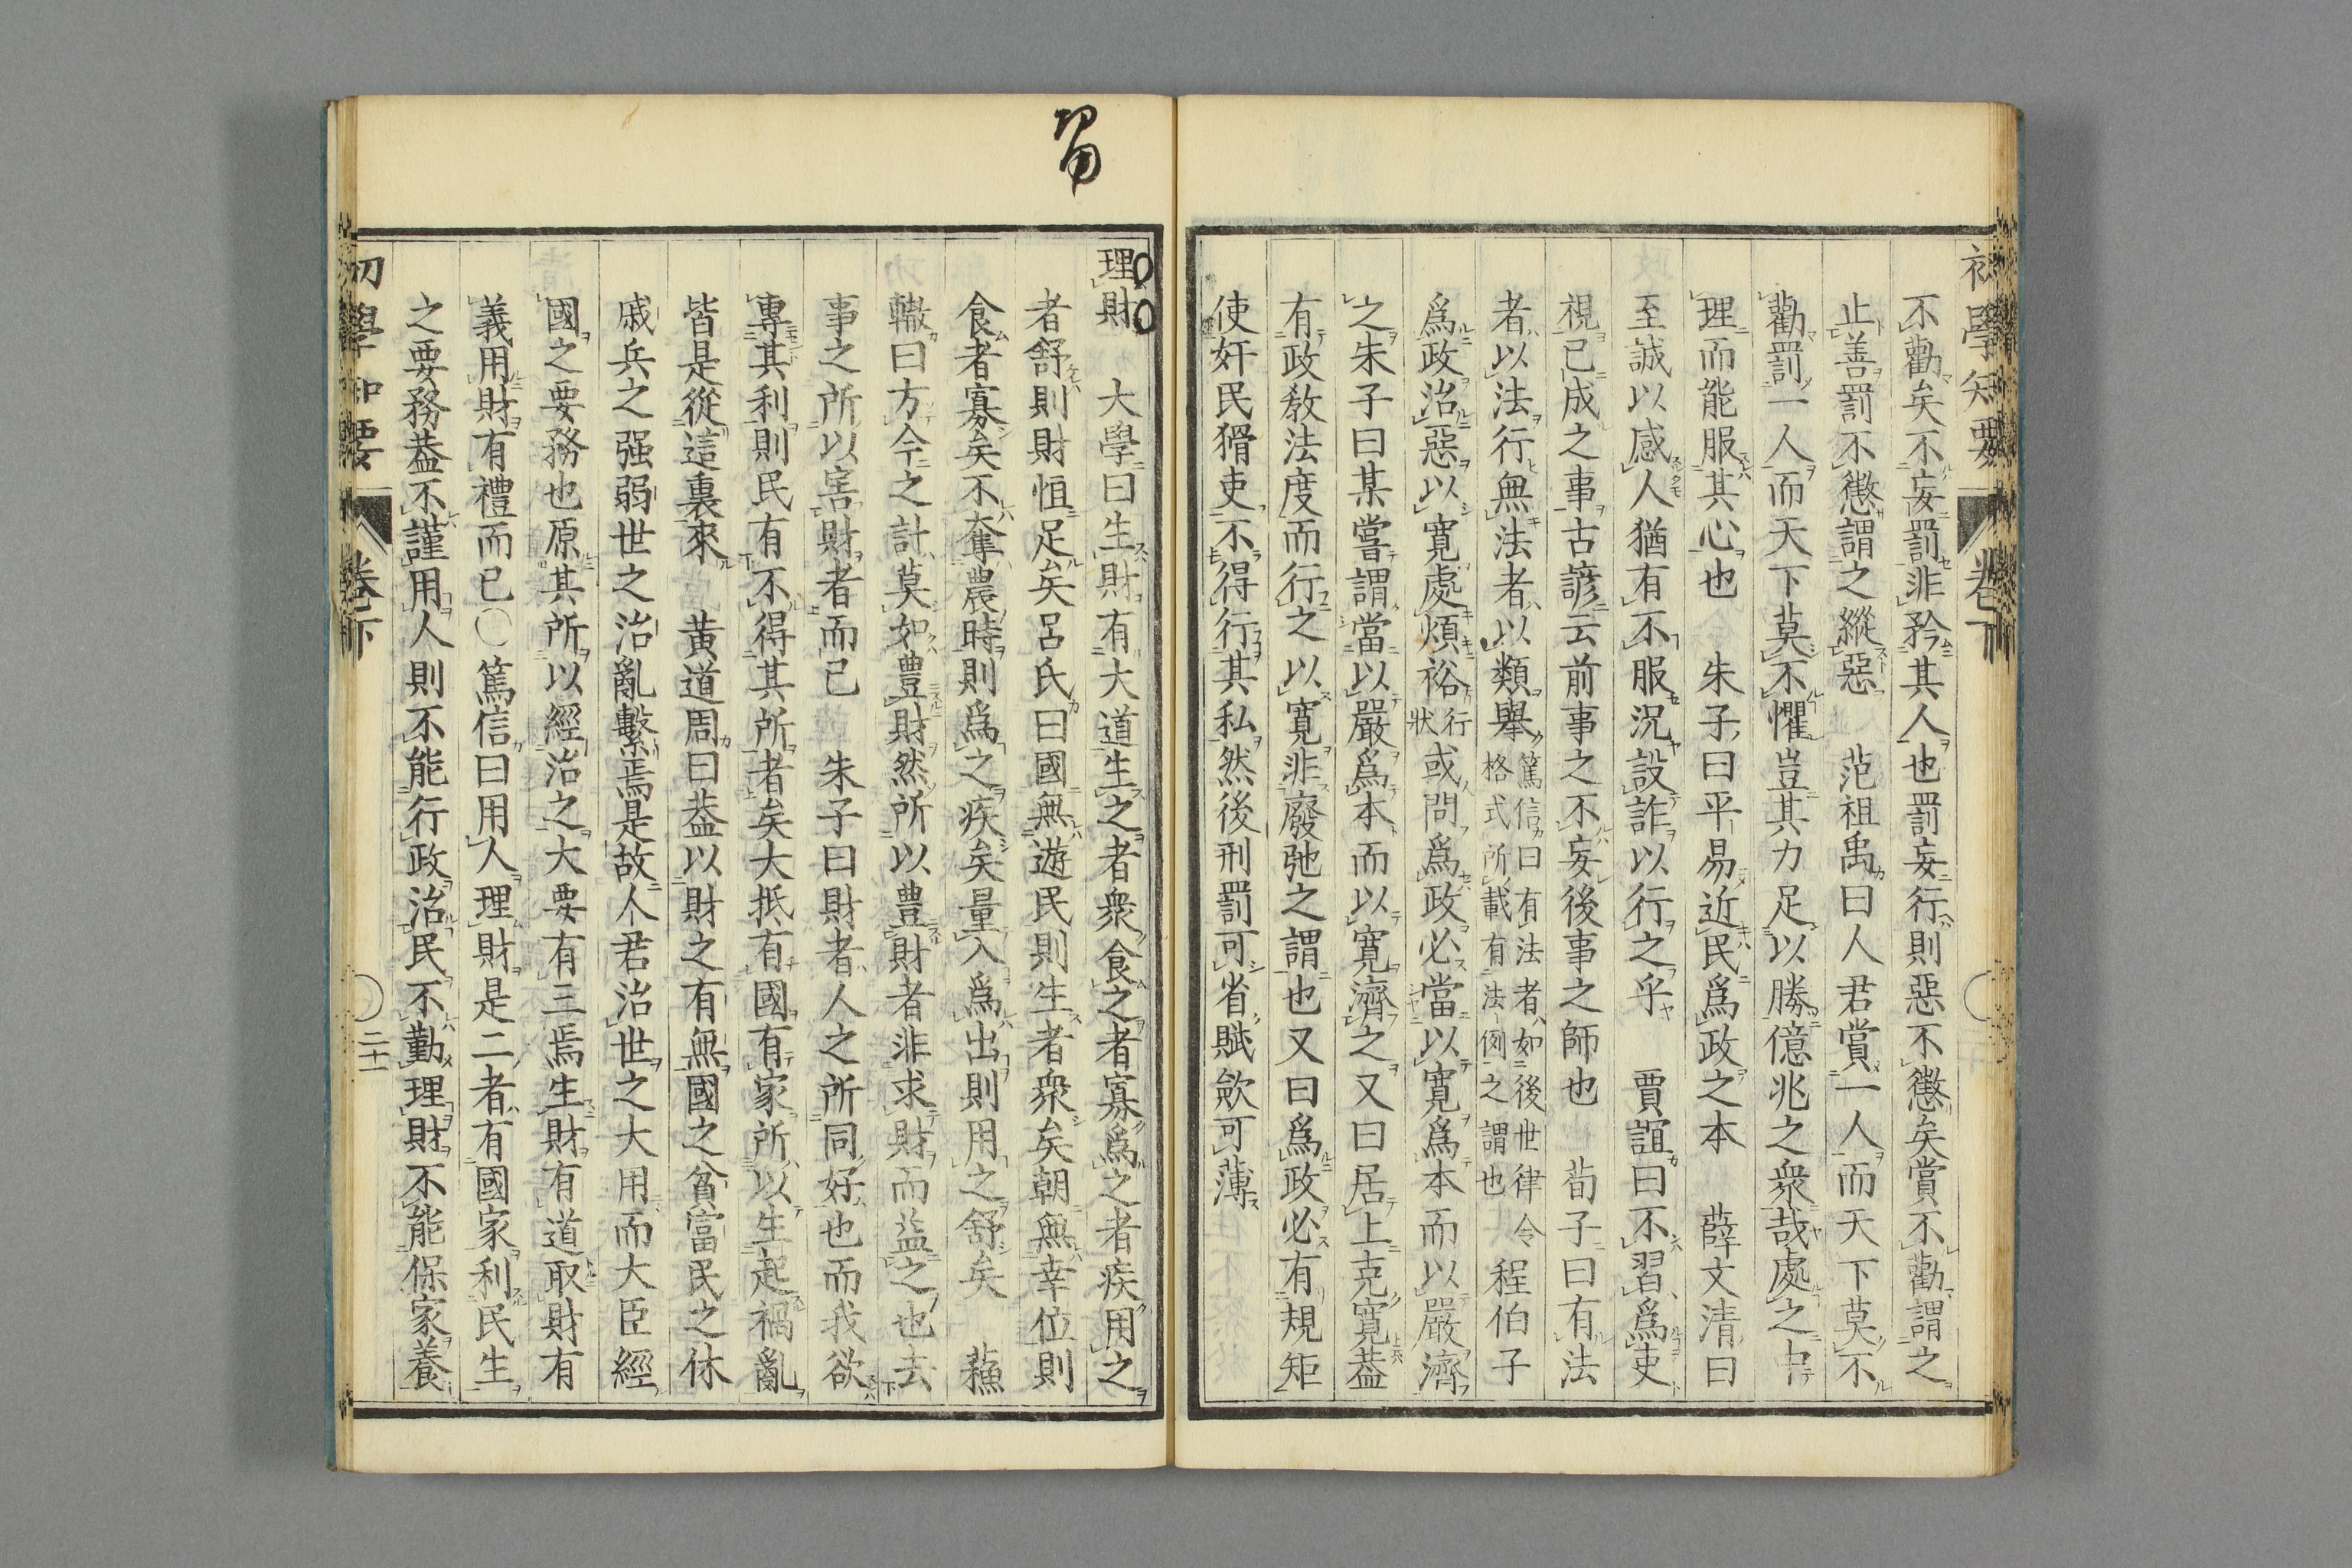 初學知要 卷下
不勸矣不妄罰非矜其人也罰妄行則惡不懲矣賞不勸謂之
止善罰不懲謂之縱惡 范祖禹曰人君賞一人而天下莫不
勸罰一人而天下莫不懼豈其力足以勝億兆之衆哉處之中
理而能服其心也 朱子曰平易近民爲政之本 薛文清曰
至誠以感人猶有不服況設詐以行之乎 賈誼曰不習爲吏
視已成之事古諺云前事之不妄後事之師也 荀子曰有法
者以法行無法者以類舉篤信曰有法者如後世律令格式所載有法例之謂也 程伯子
爲政治惡以寬處煩裕行狀或問爲政必當以寬爲本而以嚴濟
之朱子曰某嘗謂當以嚴爲本而以寬濟之又曰居上克寬蓋
有政敎法度而行之以寬非廢弛之謂也又曰爲政必有規矩
使奸民猾吏不得行其私然後刑罰可省賦歛可薄
理財 大學曰生財有大道生之者衆食之者寡爲之者疾用之
者舒則財恒足矣呂氏曰國無遊民則生者衆矣朝無幸位則
食者寡矣不奪農時則爲之疾矣量入爲出則用之舒矣 蘓
轍曰方今之計莫如豐財然所以豐財者非求財而益之也去
事之所以害財者而已 朱子曰財者人之所同好也而我欲
專其利則民有不得其所者矣大抵有國有家所以生起禍亂
皆是從這裏來 黃道周曰蓋以財之有無國之貧富民之休
戚兵之强弱世之治亂繫焉是故人君治世之大用而大臣經
國之要務也原其所以經治之大要有三焉生財有道取財有
義用財有禮而已〇篤信曰用人理財是二者有國家利民生
之要務蓋不謹用人則不能行政治民不勤理財不能保家養
初學知要 卷下 二十一